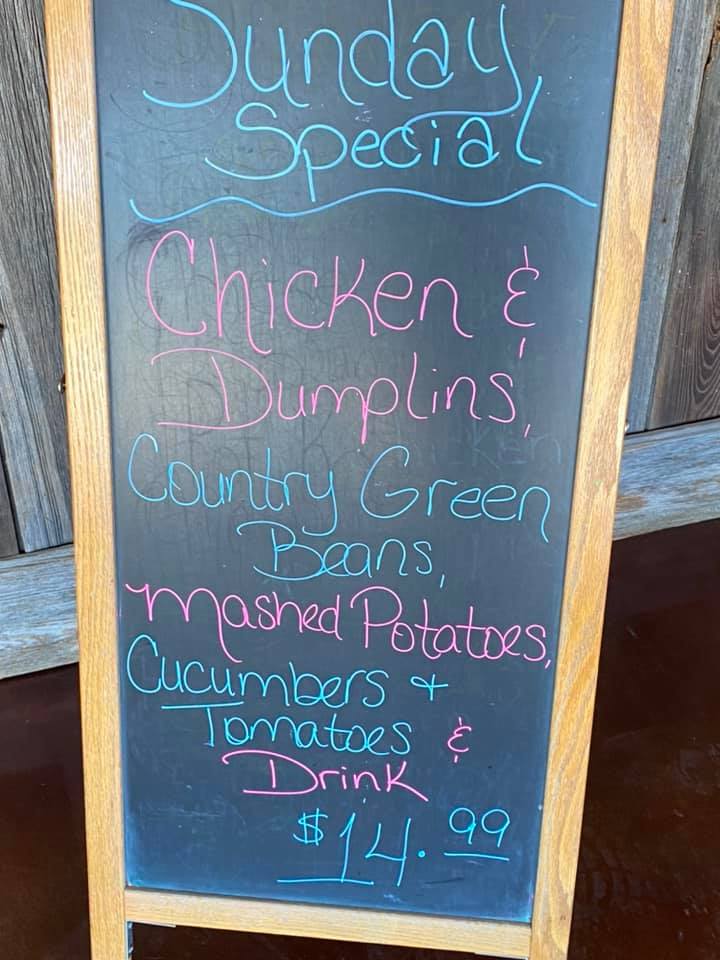 Sunday
Special
Chicken &
Dumplins,
Country Green
Beans,
Mashed Potatoes,
Cucumbers +
Tomatoes &
Drink
$14.99